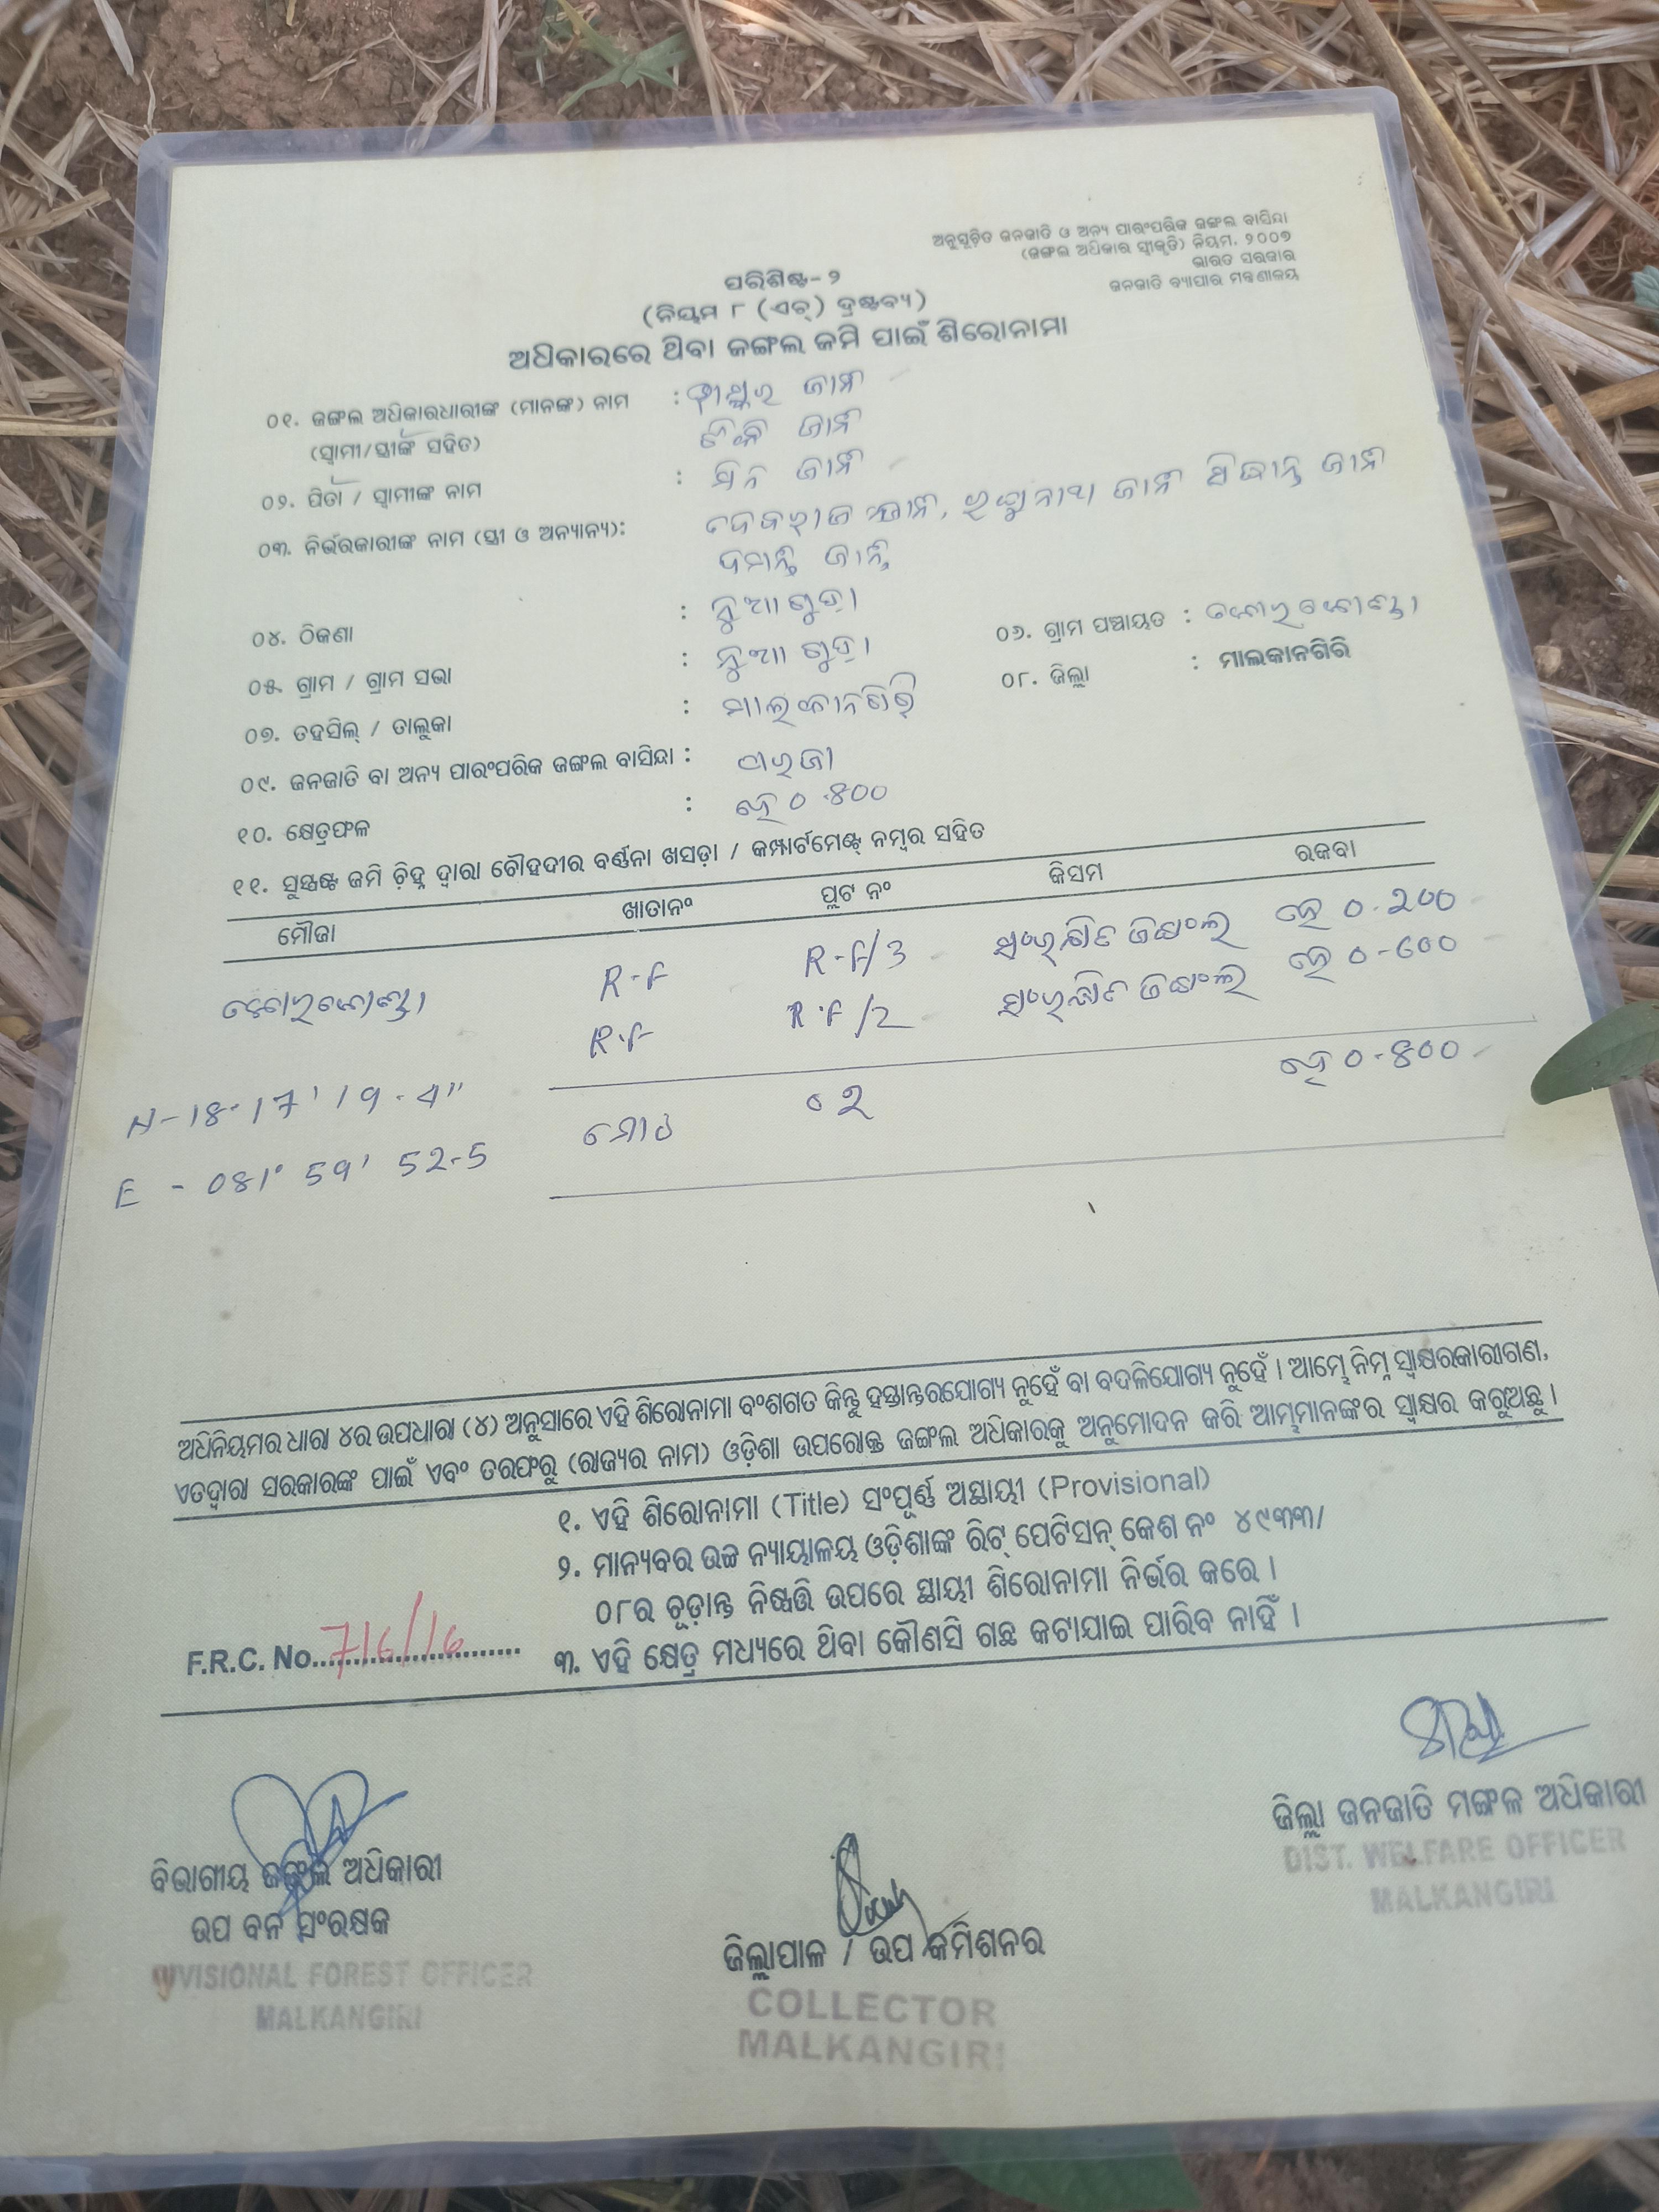 ଅନୁସୂଚିତ ଜନଜାତି ଓ ଅନ୍ୟ ପାରଂପରିକ ଜଙ୍ଗଲ ବାସିନ୍ଦା
(ଜଙ୍ଗଲ ଅଧିକାର ସ୍ୱୀକୃତି) ନିୟମ, ୨୦୦୭
ଭାରତ ସରକାର
ଜନଜାତି ବ୍ୟାପାର ମନ୍ତ୍ରଣାଳୟ
ପରିଶିଷ୍ଟ-୨
(ନିୟମ ୮ (ଏଚ୍) ଦ୍ରଷ୍ଟବ୍ୟ)
ଅଧିକାରରେ ଥିବା ଜଙ୍ଗଲ ଜମି ପାଇଁ ଶିରୋନାମା
୦୧. ଜଙ୍ଗଲ ଅଧିକାରଧାରୀଙ୍କ (ମାନଙ୍କ) ନାମ : ଜାନି
(ସ୍ୱାମୀ/ସ୍ତ୍ରୀଙ୍କ ସହିତ) ଜାନି
୦୨. ପିତା / ସ୍ୱାମୀଙ୍କ ନାମ : ଜାନି
୦୩. ନିର୍ଭରକାରୀଙ୍କ ନାମ (ସ୍ତ୍ରୀ ଓ ଅନ୍ୟାନ୍ୟ): ଦେବରାଜ ଜାନି, ରଘୁନାଥ ଜାନି ଜାନି
ଜାନି
୦୪. ଠିକଣା : ନୁଆଗୁଡ଼ା
୦୫. ଗ୍ରାମ / ଗ୍ରାମ ସଭା : ନୁଆଗୁଡ଼ା ୦୬. ଗ୍ରାମ ପଞ୍ଚାୟତ :
୦୭. ତହସିଲ୍ / ତାଲୁକା : ମାଲକାନଗିରି ୦୮. ଜିଲ୍ଲା : ମାଲକାନଗିରି
୦୯. ଜନଜାତି ବା ଅନ୍ୟ ପାରଂପରିକ ଜଙ୍ଗଲ ବାସିନ୍ଦା : ପରଜା
୧୦. କ୍ଷେତ୍ରଫଳ : ହେ ୦.୫୦୦
୧୧. ସୁସ୍ପଷ୍ଟ ଜମି ଚିହ୍ନ ଦ୍ୱାରା ଚୌହଦୀର ବର୍ଣ୍ଣନା ଖସଡ଼ା / କମ୍ପାର୍ଟମେଣ୍ଟ୍ ନମ୍ବର ସହିତ
ମୌଜା ଖାତାନଂ ପ୍ଲଟ ନଂ କିସମ ରକବା
R-F R-F/3 ସଂରକ୍ଷିତ ଜଙ୍ଗଲ ହେ ୦.୨୦୦
R.F R.F/2 ସଂରକ୍ଷିତ ଜଙ୍ଗଲ ହେ
N-18°17'19.4" ମୋଟ ୦୨ ହେ ୦.୫୦୦
E - 081° 59' 52.5
ଅଧିନିୟମର ଧାରା ୪ର ଉପଧାରା (୪) ଅନୁସାରେ ଏହି ଶିରୋନାମା ବଂଶଗତ କିନ୍ତୁ ହସ୍ତାନ୍ତରଯୋଗ୍ୟ ନୁହେଁ ବା ବଦଳିଯୋଗ୍ୟ ନୁହେଁ । ଆମ୍ଭେ ନିମ୍ନ ସ୍ୱାକ୍ଷରକାରୀଗଣ,
ଏତଦ୍ୱାରା ସରକାରଙ୍କ ପାଇଁ ଏବଂ ତରଫରୁ (ରାଜ୍ୟର ନାମ) ଓଡ଼ିଶା ଉପରୋକ୍ତ ଜଙ୍ଗଲ ଅଧିକାରକୁ ଅନୁମୋଦନ କରି ଆମ୍ଭମାନଙ୍କର ସ୍ୱାକ୍ଷର କରୁଅଛୁ ।
୧. ଏହି ଶିରୋନାମା (Title) ସଂପୂର୍ଣ୍ଣ ଅସ୍ଥାୟୀ (Provisional)
୨. ମାନ୍ୟବର ଉଚ୍ଚ ନ୍ୟାୟାଳୟ ଓଡ଼ିଶାଙ୍କ ରିଟ୍ ପେଟିସନ୍ କେଶ ନଂ ୪୯୩୩/
୦୮ର ଚୂଡ଼ାନ୍ତ ନିଷ୍ପତ୍ତି ଉପରେ ସ୍ଥାୟୀ ଶିରୋନାମା ନିର୍ଭର କରେ ।
F.R.C. No. 716/16
୩. ଏହି କ୍ଷେତ୍ର ମଧ୍ୟରେ ଥିବା କୌଣସି ଗଛ କଟାଯାଇ ପାରିବ ନାହିଁ ।
ଜିଲ୍ଲା ଜନଜାତି ମଙ୍ଗଳ ଅଧିକାରୀ
DIST. WELFARE OFFICER
MALKANGIRI
ବିଭାଗୀୟ ଜଙ୍ଗଲ ଅଧିକାରୀ
ଉପ ବନ ସଂରକ୍ଷକ
DIVISIONAL FOREST OFFICER
MALKANGIRI
ଜିଲ୍ଲାପାଳ / ଉପ କମିଶନର
COLLECTOR
MALKANGIRI